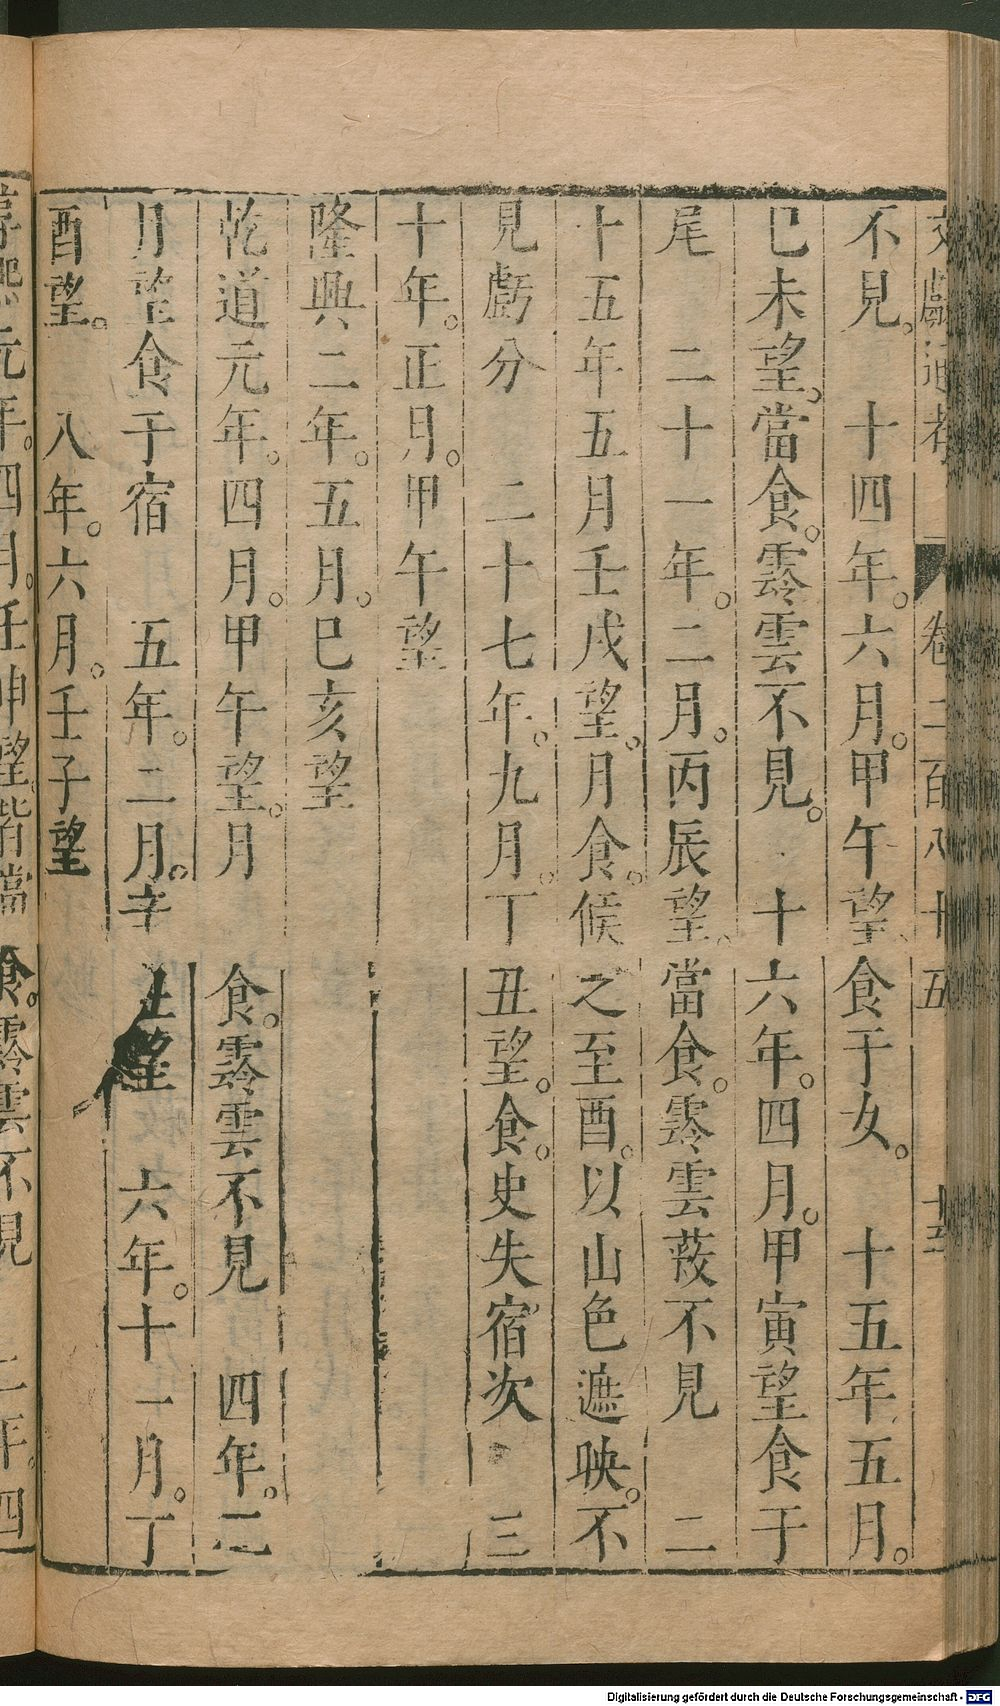 文獻通考 卷二百八十五 十五
不見。 十四年。六月。甲午望食于女。 十五年五月。
已未望。當食。霧雲不見。 十六年。四月。甲寅望食于
尾 二十一年。二月。丙辰望。當食。霧雲蔽不見 二
十五年五月壬戌望。月食。候之至酉。以山色遮映。不
見虧分 二十七年。九月。丁丑望。食。史失宿次 三
十年。正月。甲午望
隆興二年。五月。巳亥望
乾道元年。四月。甲午望。月食。霧雲不見 四年。二
月望食于宿 五年。二月。辛丑望 六年。十一月。丁
酉望。 八年。六月。壬子望
淳熙元年。四月。壬申望。皆當食。霧雲不見 二年。四
Digitalisierung gefördert durch die Deutsche Forschungsgemeinschaft - DFG